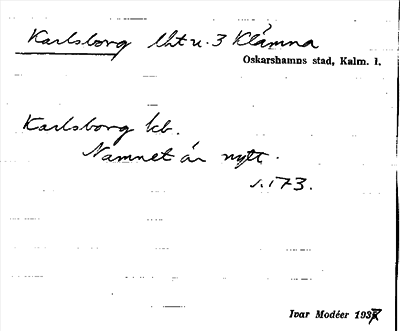 Karlsborg lht u. 3 Klämna
Oskarshamns stad, Kalm. l.
Karlsborg lcb.
Namnet är nytt.
s. 173.
Ivar Modéer 1937